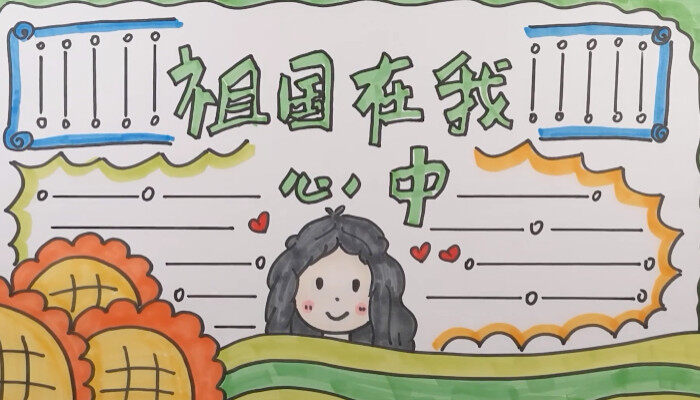 祖国在我
心中